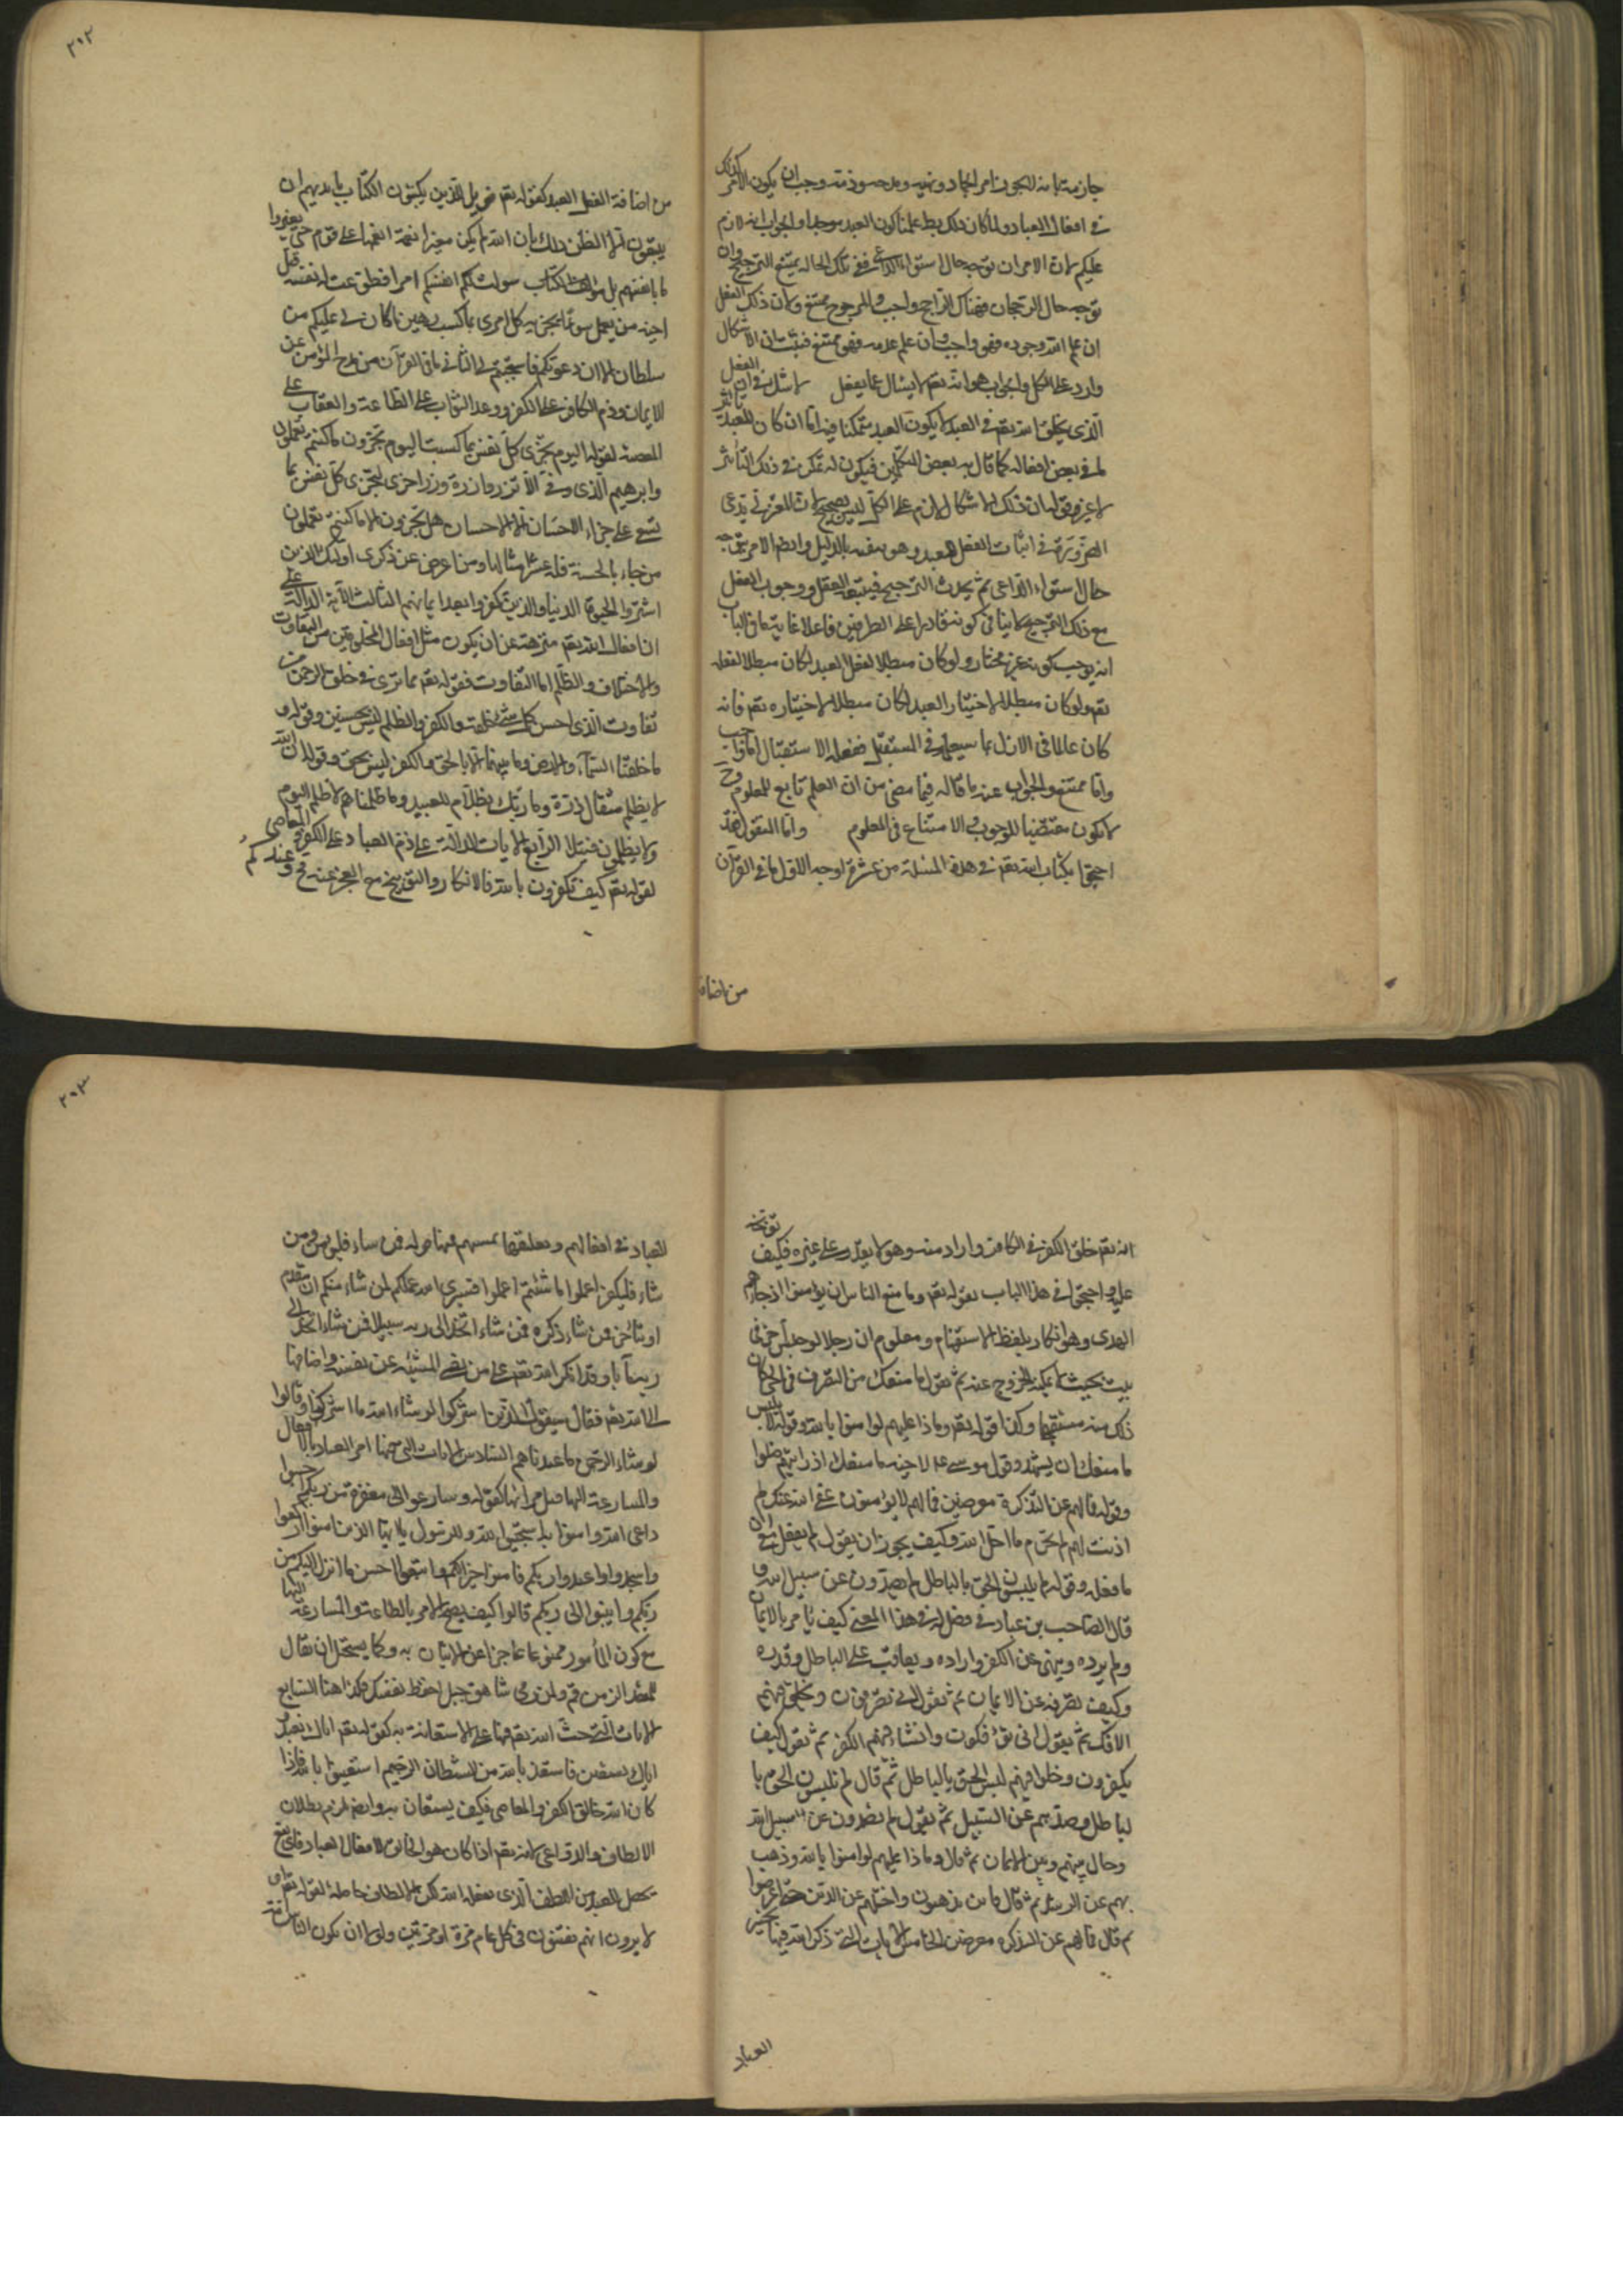 جازمة بانه للجون امر الجماد ونهيه ومدحه وذمه وجب ان يكون الامر كذلك
في افعال العباد ولما كان ذلك بط علمنا كون العبد موجدا والجواب انه لازم
عليكم لان الامر ان توجه حال استواء الداعي ففي تلك الحالة يمتنع الترجيح وان
توجه حال الرجحان فهناك الراجح واجب والمرجوح ممتنع ولان ذلك الفعل
ان علم الله وجوده فهو واجب وان علم عدمه فهو ممتنع فثبت ان الاشكال
وارد على الكل والجواب هو انه تعم لا يسال عما يفعل لا شك في ان الفعل
الذي يخلق الله تعم في العبد لا يكون العبد متمكنا فيه اما ان كان للعبد تاثير
لم في بعض افعاله كما قال به بعض المتكلمين فيكون له تمكن في ذلك التأثير
لا غير وقوله بان ذلك الاشكال لازم على الكل ليس بصحيح لان المعتزلي يدعى
الضرورة في اثبات الفعل للعبد وهو بالدليل وايضا الامر يتوجه
حال استواء الداعي ثم يحدث الترجيح فيتبعه الفعل ووجوب الفعل
مع ذلك الترجيح لا ينافي كونه قادرا على الطرفين فاعلا غاية ما في الباب
انه يوجب كونه غير مختار ولو كان مبطلا لفعل العبد لكان مبطلا لفعله
تعم ولو كان مبطلا لاختيار العبد لكان مبطلا لاختياره تعم فانه
كان عالما في الازل بما سيفعله في المستقبل ففعله الاستقبال اما واجب
واما ممتنع والجواب عنه ما قاله فيما مضى من ان العلم تابع للمعلوم وح
لا يكون مقتضيا للوجوب والامتناع في المعلوم واما النقول فقد
احتجوا بكتاب الله تعم في هذه المسئلة من عشرة اوجه الاول ما في القرآن
من اضافة
٢٠٢
من اضافة الفعل العبد كقوله تعم فويل للذين يكتبون الكتاب بايديهم ان
يتبعون الا الظن ذلك بان الله لم يكن مغيرا نعمة انعمها على قوم حتى يغيروا
ما بانفسهم بل سولت لكم انفسكم امرا فطوعت له نفسه قتل
اخيه من يعمل سوءا يجز به كل امرئ بما كسب رهين ما كان لي عليكم من
سلطان الا ان دعوتكم فاستجبتم لي الثاني ما في القرآن من مدح المؤمن على
الايمان وذم الكافر على الكفر ووعد الثواب على الطاعة والعقاب على
المعصية لقوله اليوم تجزى كل نفس بما كسبت اليوم تجزون ما كنتم تعملون
وابرهيم الذي وفى الا تزر وازرة وزر اخرى لتجزى كل نفس بما
تسعى هل جزاء الاحسان الا الاحسان هل تجزون الا ما كنتم تعملون
من جاء بالحسنة فله عشر امثالها ومن اعرض عن ذكرى اولئك الذين
اشتروا الحيوة الدنيا والذين كفروا بعد ايمانهم الثالث الآية الدالة على
ان افعال الله تعم منزهة عن ان يكون مثل افعال المخلوقين من التفاوت
والاختلاف والظلم اما التفاوت فقوله تعم ما ترى في خلق الرحمن من
تفاوت الذي احسن كل شيء خلقه والكفر والظلم ليس بحسنين وقوله و
ما خلقنا السماء والارض وما بينهما الا بالحق والكفر ليس بحق وقوله ان الله
لا يظلم مثقال ذرة وما ربك بظلام للعبيد وما ظلمناهم لا ظلم اليوم
ولا يظلمون فتيلا الرابع الآيات الدالة على ذم العباد على الكفر والمعاصى
لقوله تعم كيف تكفرون بالله فالانكار والتوبيخ مع العجز عنه مح وعندكم
انه تعم خلق الكفر في الكافر واراد منه وهو لا يقدر على غيره فكيف توبخه
عليه واحتجوا في هذا الباب بقوله تعم وما منع الناس ان يؤمنوا اذ جاءهم
الهدى وهو انكار بلفظ الاستفهام ومعلوم ان رجلا لو حبس آخر في
بيت بحيث لا يمكنه الخروج عنه ثم يقول ما منعك من التصرف في الحوائج كان
ذلك منه مستقبحا وكذا قوله تعم وماذا عليهم لو امنوا بالله وقوله لابليس
ما منعك ان تسجد وقول موسى عم لاخيه ما منعك اذ رايتهم ضلوا
وقوله فما لهم عن التذكرة معرضين فما لهم لا يؤمنون عفى الله عنك لم
اذنت لهم لم تحرم ما احل الله وكيف يجوز ان يقول لم تفعل مع ان
ما فعله وقوله لم تلبسون الحق بالباطل لم تصدون عن سبيل الله و
قال الصاحب بن عباد في فصل له في هذا المعنى كيف يامر بالايمان
ولم يرده وينهى عن الكفر واراده ويعاقب على الباطل وقدره
وكيف يصرفه عن الايمان ثم يقول انى تصرفون ويخلق فيهم
الافك ثم يقول انى تؤفكون وانشاء فيهم الكفر ثم يقول كيف
يكفرون وخلق فيهم لبس الحق بالباطل ثم قال لم تلبسون الحق با
لباطل وصدهم عن السبيل ثم يقول لم تصدون عن سبيل الله
وحال بينهم وبين الايمان ثم قال وماذا عليهم لو امنوا بالله وذهب
بهم عن الرشد ثم قال فاين تذهبون واضلهم عن الدين حتى اعرضوا
ثم قال فما لهم عن التذكرة معرضين الخامس الآيات التي ذكر الله فيها تخيير
العباد
٢٠٣
العباد في افعالهم وتعلقها بمشيتهم فمنها قوله فمن شاء فليؤمن ومن
شاء فليكفر اعملوا ما شئتم اعملوا فسيرى الله عملكم لمن شاء منكم ان يتقدم
او يتأخر فمن شاء ذكره فمن شاء اتخذ الى ربه سبيلا فمن شاء اتخذ الى
ربه مآبا وقد انكر الله تعم على من نفى المشية عن نفسه واضافها
الى الله تعم فقال سيقول الذين اشركوا لو شاء الله ما اشركنا وقالوا
لو شاء الرحمن ما عبدناهم السادس الآيات التي فيها امر العباد بالافعال
والمسارعة اليها قبل فواتها كقوله وسارعوا الى مغفرة من ربكم اجيبوا
داعى الله وامنوا به استجيبوا لله وللرسول يا ايها الذين امنوا اركعوا
واسجدوا واعبدوا ربكم فامنوا خيرا لكم واتبعوا احسن ما انزل اليكم من
ربكم وانيبوا الى ربكم قالوا كيف يصح الامر بالطاعة والمسارعة اليها
مع كون المأمور ممنوعا عاجزا عن الاتيان به وكما يستحيل ان يقال
للمقعد الزمن قم ولمن رمى شاهق جبل احفظ نفسك فكذا هنا السابع
الآيات التي حث الله تعم فيها على الاستعانة به كقوله تعم اياك نعبد و
اياك نستعين فاستعذ بالله من الشيطان الرجيم استعينوا بالله فاذا
كان الله خالق الكفر والمعاصى فكيف يستعان به وايضا يلزم بطلان
الالطاف والدواعى لانه تعم اذا كان هو الخالق لافعال العباد فاي نفع
يحصل للعبد من اللطف الذي يفعله الله لكن الالطاف حاصلة لقوله تعم او
لا يرون انهم يفتنون في كل عام مرة او مرتين ولولا ان يكون الناس امة